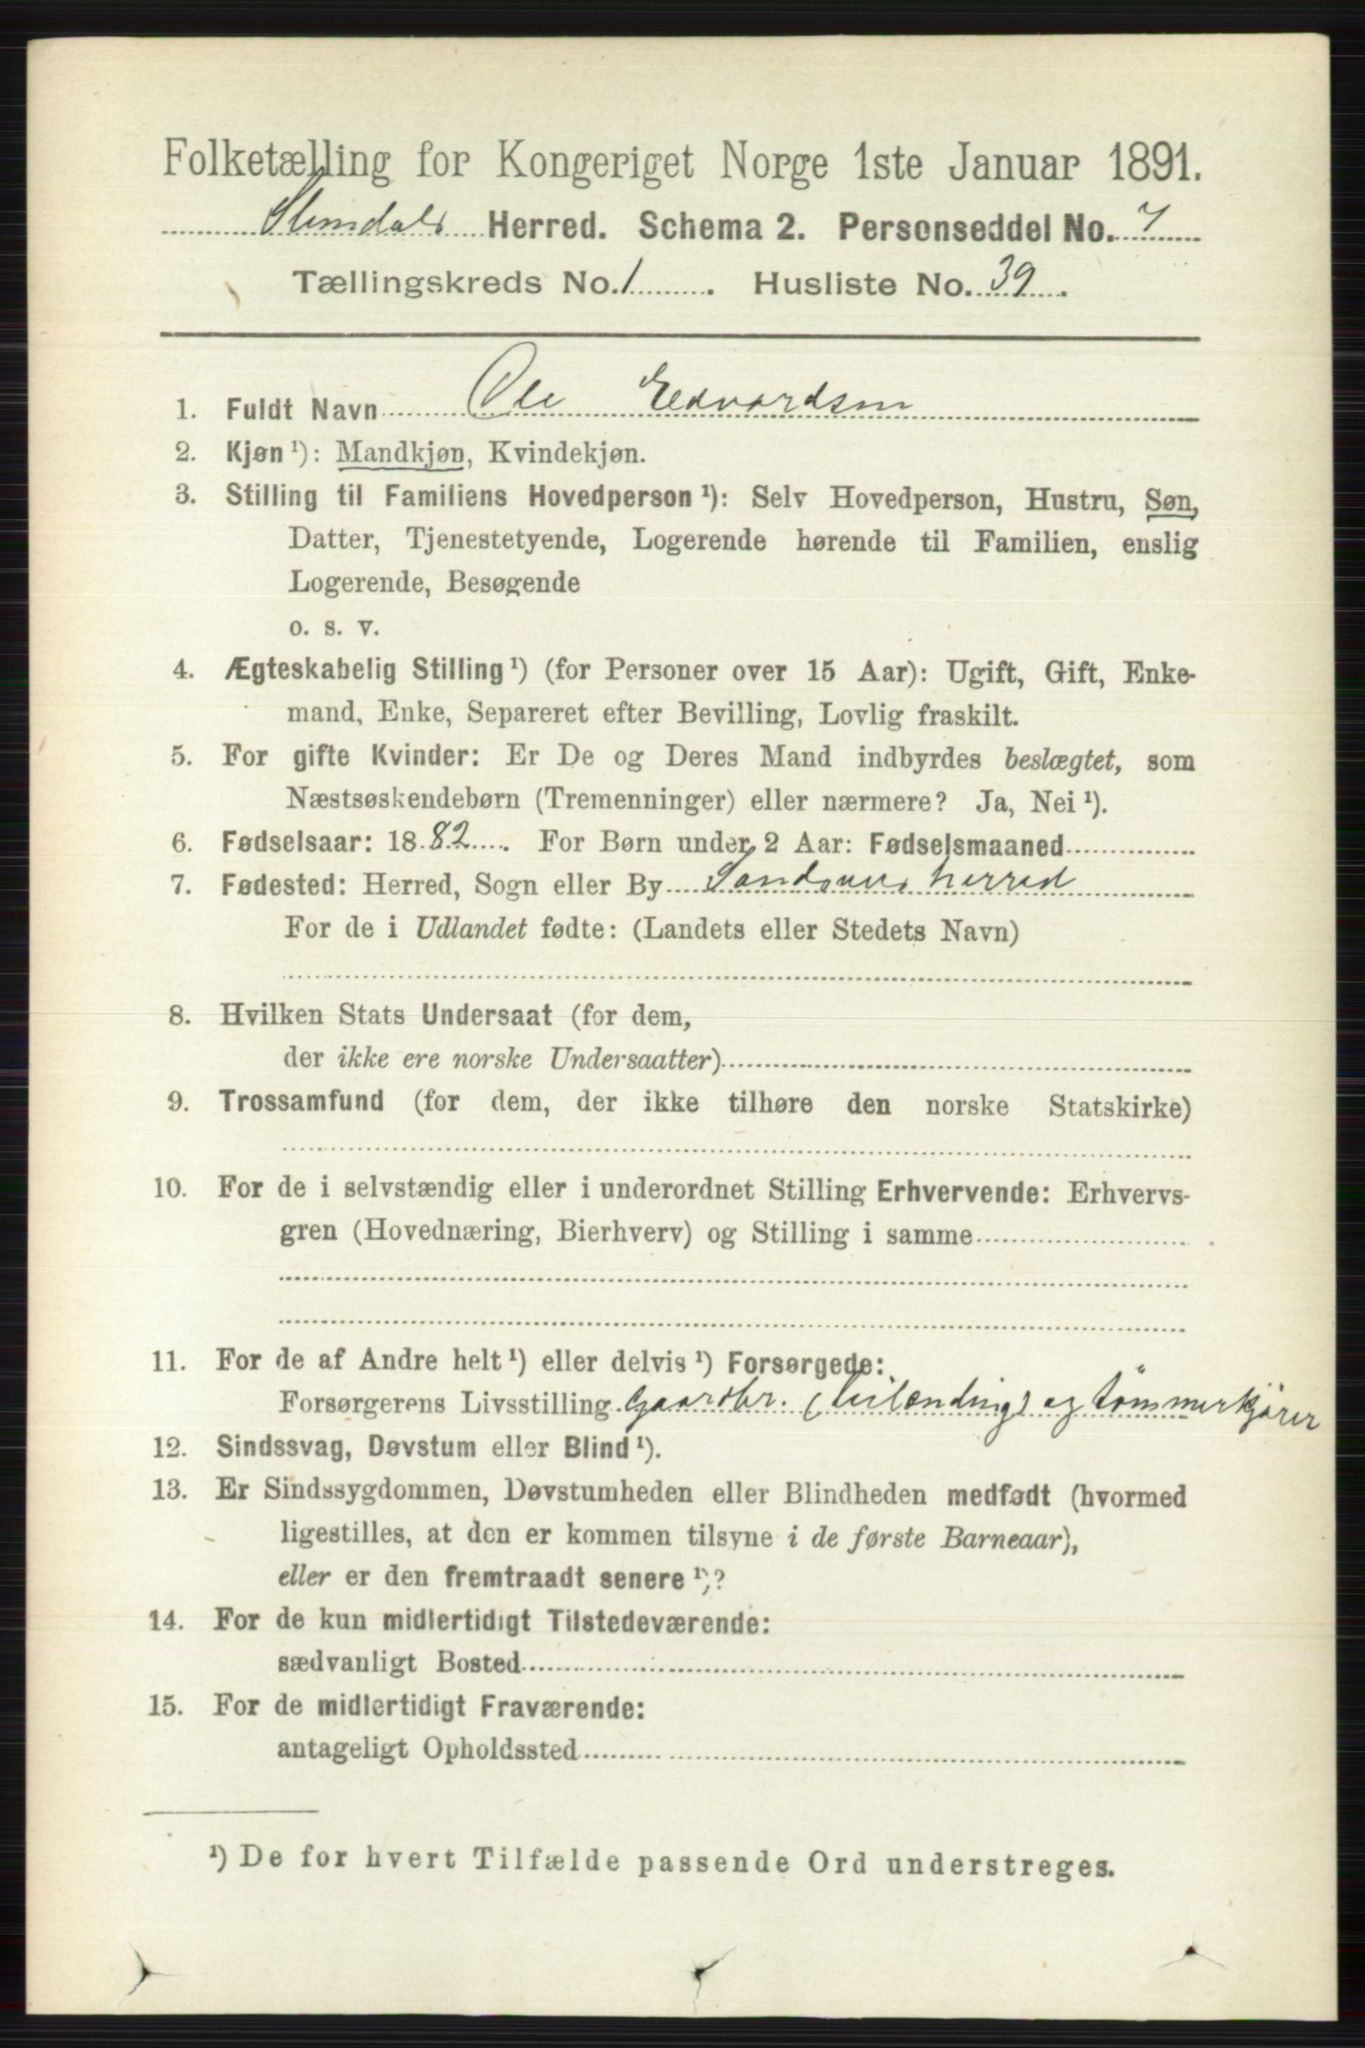 Folketælling for Kongeriget Norge 1ste Januar 1891.
Slemdals Herred. Schema 2. Personseddel No. 7
Tællingskreds No. 1. Husliste No. 39.
1. Fuldt Navn Ole Edvardsen
2. Kjøn ¹): Mandkjøn, Kvindekjøn.
3. Stilling til Familiens Hovedperson ¹): Selv Hovedperson, Hustru, Søn,
Datter, Tjenestetyende, Logerende hørende til Familien, enslig
Logerende, Besøgende
o. s. v.
4. Ægteskabelig Stilling ¹) (for Personer over 15 Aar): Ugift, Gift, Enke-
mand, Enke, Separeret efter Bevilling, Lovlig fraskilt.
5. For gifte Kvinder: Er De og Deres Mand indbyrdes beslægtet, som
Næstsøskendebørn (Tremenninger) eller nærmere? Ja, Nei ¹).
6. Fødselsaar: 1882. For Børn under 2 Aar: Fødselsmaaned
7. Fødested: Herred, Sogn eller By Sandsvær herred
For de i Udlandet fødte: (Landets eller Stedets Navn)
8. Hvilken Stats Undersaat (for dem,
der ikke ere norske Undersaatter)
9. Trossamfund (for dem, der ikke tilhøre den norske Statskirke)
10. For de i selvstændig eller i underordnet Stilling Erhvervende: Erhvervs-
gren (Hovednæring, Bierhverv) og Stilling i samme
11. For de af Andre helt ¹) eller delvis ¹) Forsørgede:
Forsørgerens Livsstilling Gaardbr. (leilending) og tømmerkjører
12. Sindssvag, Døvstum eller Blind ¹).
13. Er Sindssygdommen, Døvstumheden eller Blindheden medfødt (hvormed
ligestilles, at den er kommen tilsyne i de første Barneaar),
eller er den fremtraadt senere ¹)?
14. For de kun midlertidigt Tilstedeværende:
sædvanligt Bosted
15. For de midlertidigt Fraværende:
antageligt Opholdssted
¹) De for hvert Tilfælde passende Ord understreges.